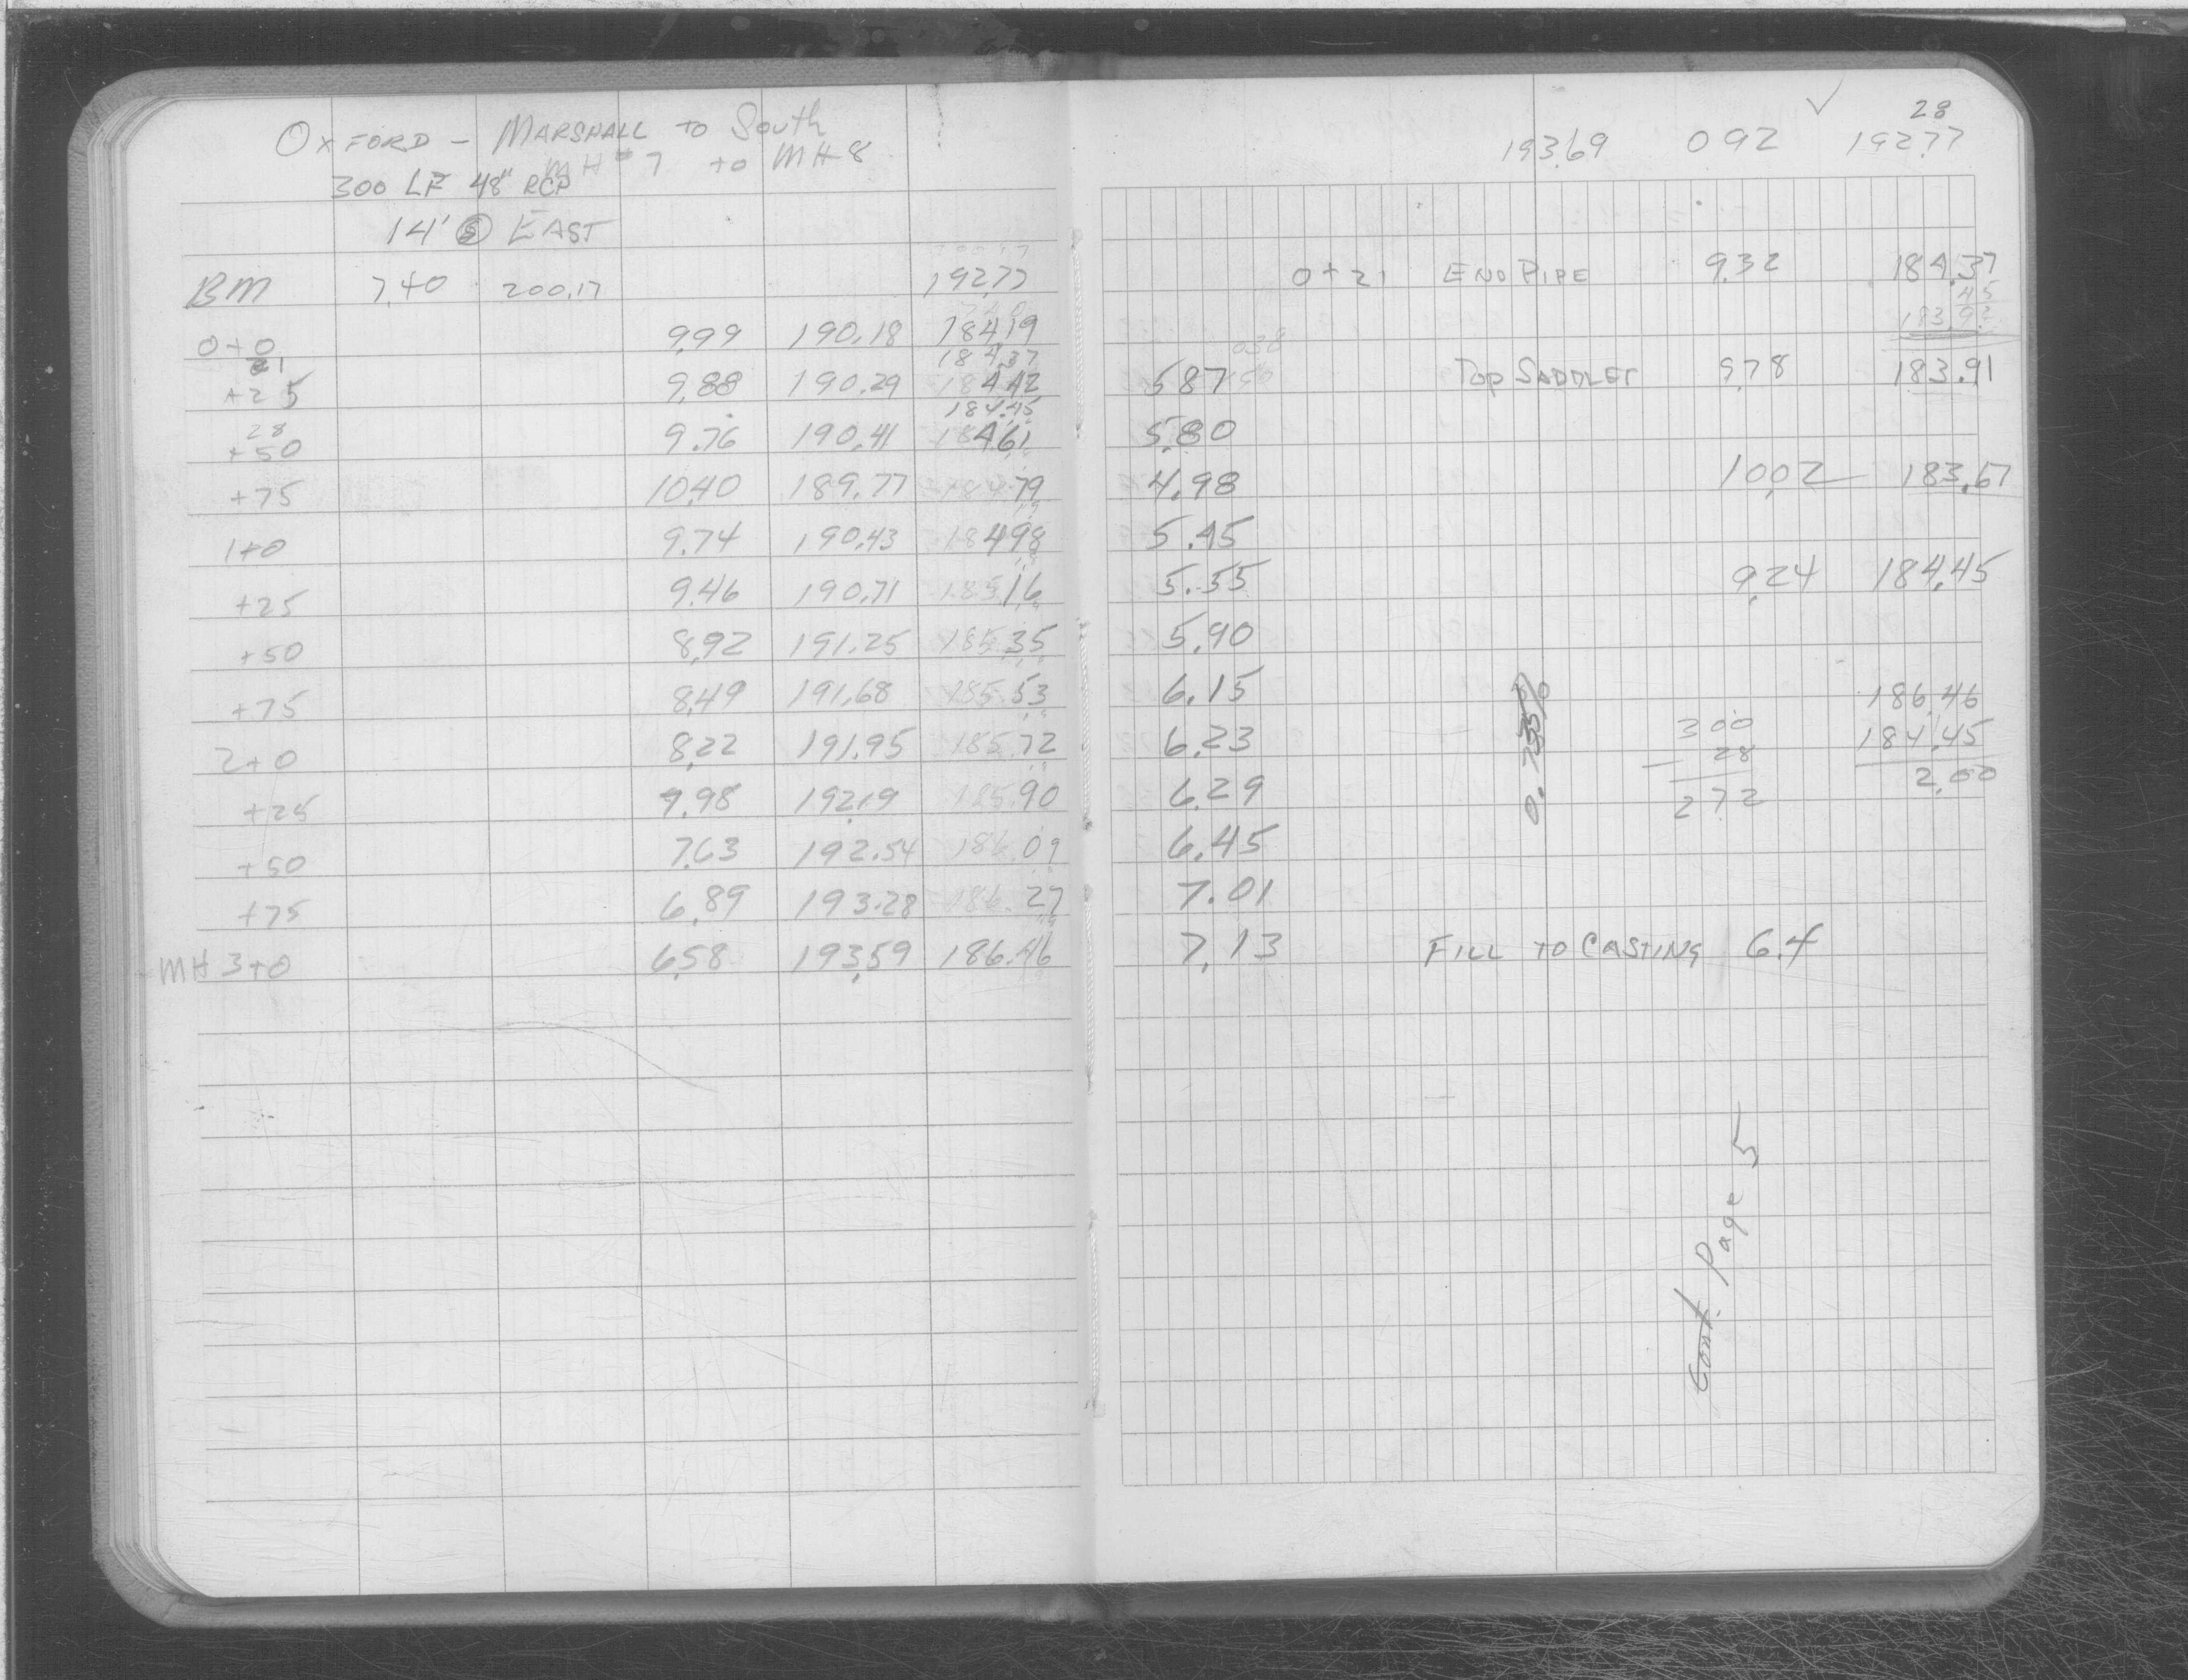 OXFORD - MARSHALL TO South
MH #7 to MH 8
300 LF 48" RCP
14' EAST
BM 7.40 200.17 192.77
0+0 9.99 190.18 184.19
21 184.37
+25 9.88 190.29 184.42
28 184.45
+50 9.76 190.41 184.61
+75 10.40 189.77 184.79
1+0 9.74 190.43 184.98
+25 9.46 190.71 185.16
+50 8.92 191.25 185.35
+75 8.49 191.68 185.53
2+0 8.22 191.95 185.72
+25 7.98 192.19 185.90
+50 7.63 192.54 186.09
+75 6.89 193.28 186.27
MH 3+0 6.58 193.59 186.46
28
193.69 0 92 192.77
0+21 END PIPE 9.32 184.37
45
183.92
5.87 TOP SADDLET 9.78 183.91
5.80
4.98 10.02 183.67
5.45
5.55 9.24 184.45
5.90
6.15 186.46
6.23 300 184.45
28 2.00
6.29 272
6.45
7.01
7.13 FILL TO CASTING 6.4
Cont. Page 5